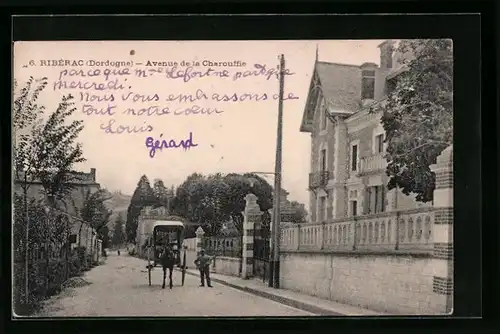 6. RIBÉRAC (Dordogne) — Avenue de la Charouffie
parceque Mme Lefort ne part que
mercredi.
Nous vous embrassons de
tout notre cœur
Louis
Gérard